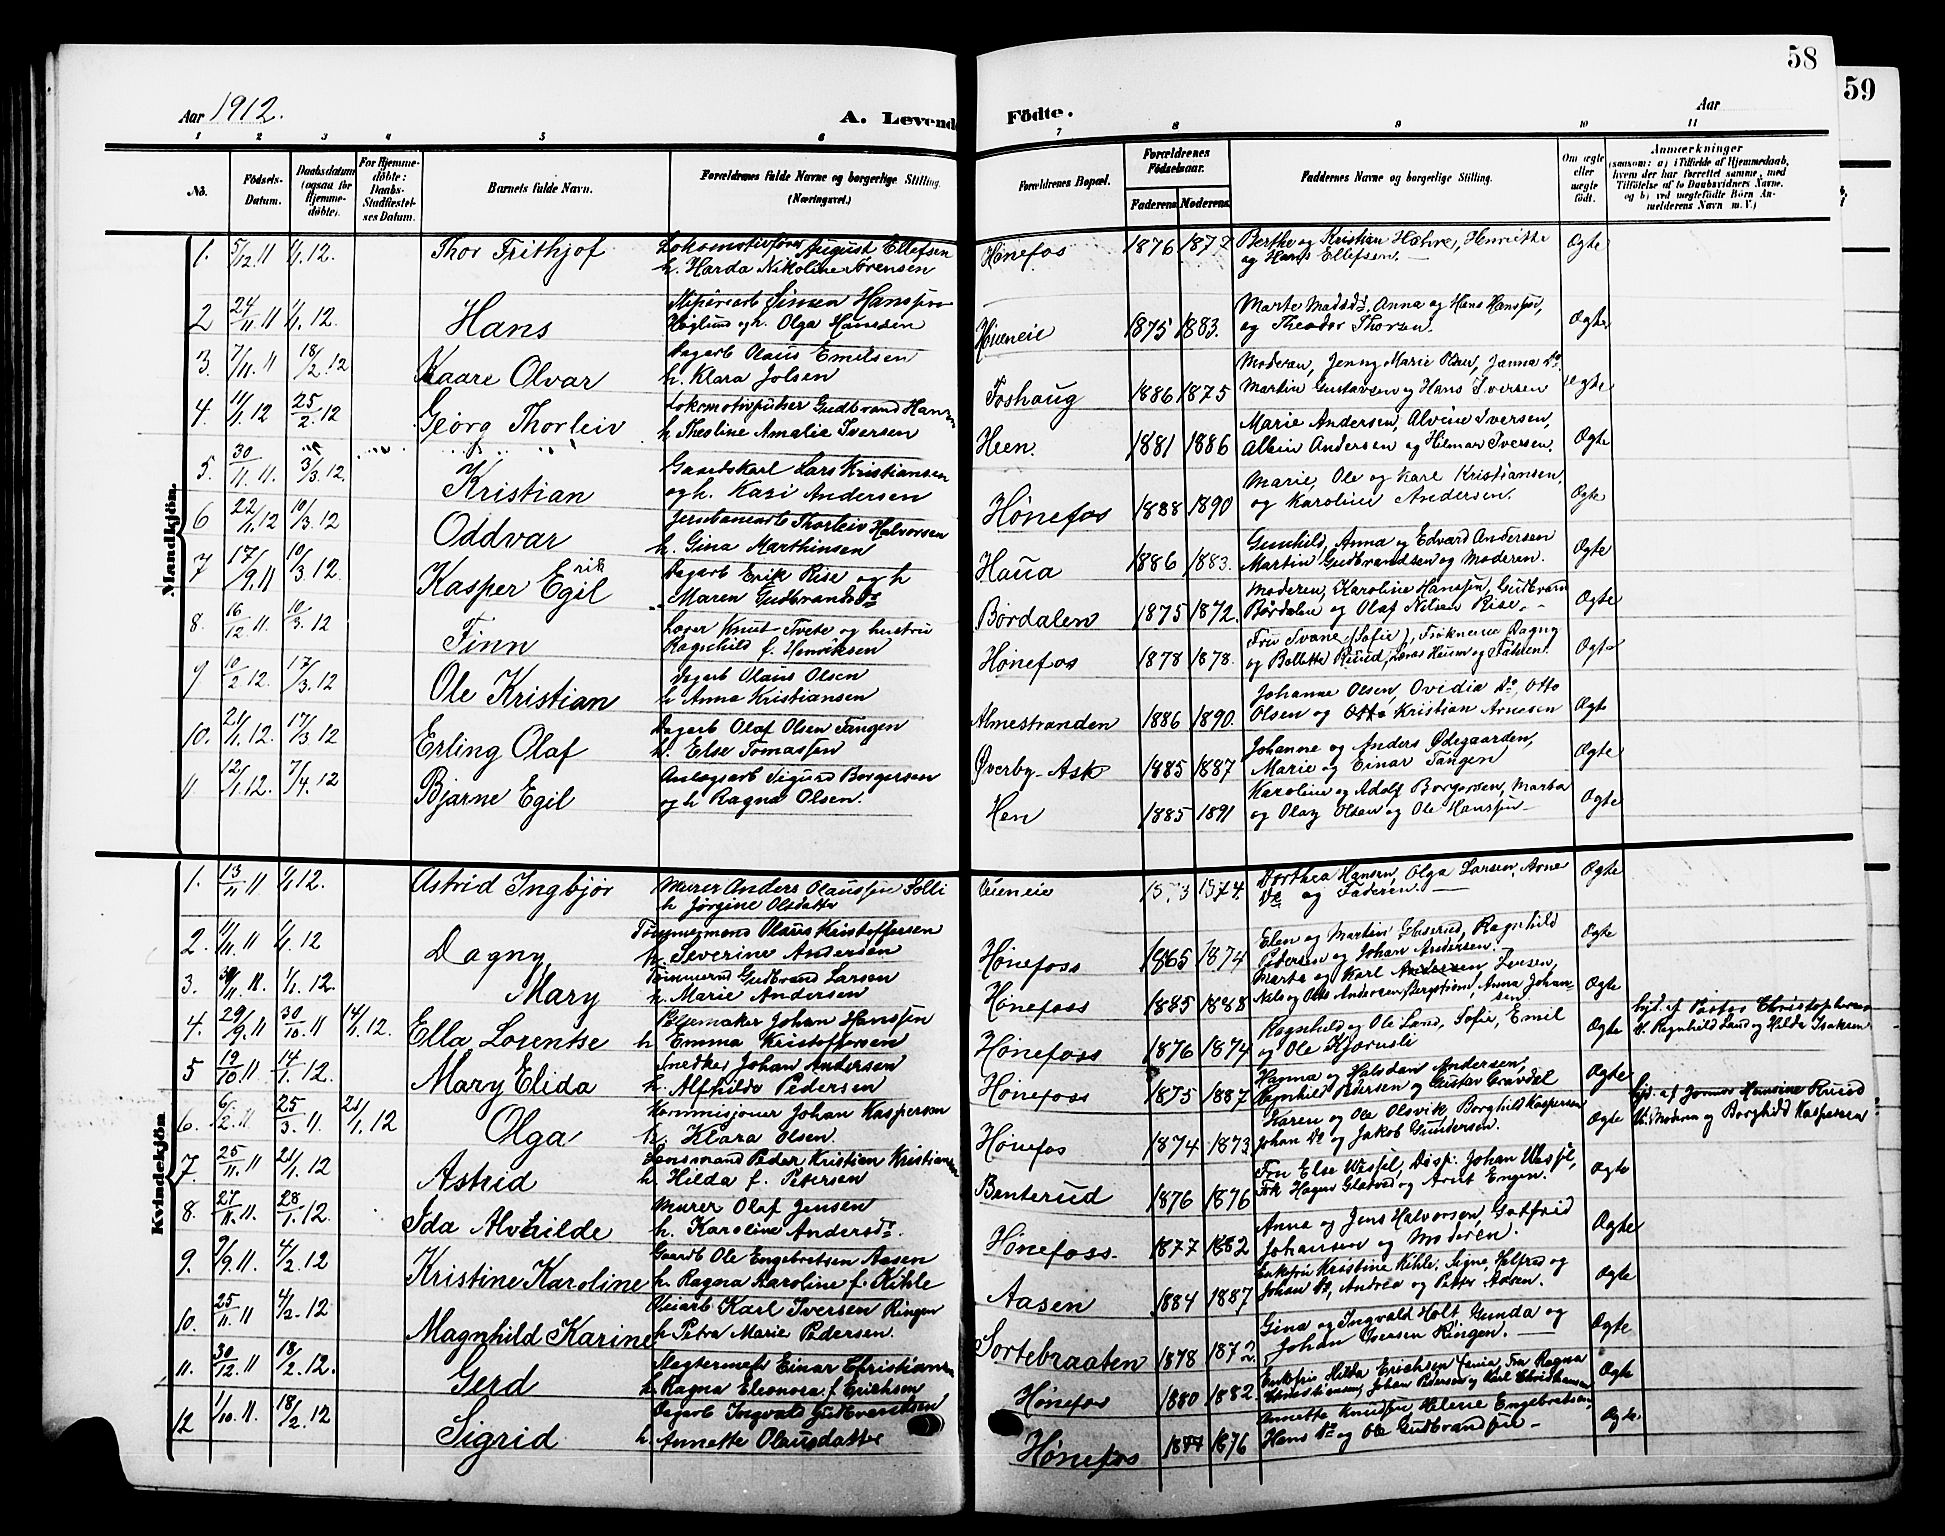 58
59
Aar 1912.
A. Levende Födte.
Aar
1 2 3 4 5 6 7 8 9 10 11
No.
Födsels-Datum.
Daabsdatum (ogsaa for Hjemme-döbte).
For Hjemme-döbte: Daabs-Stadfæstel-ses Datum.
Barnets fulde Navn.
Forældrenes fulde Navne og borgerlige Stilling. (Næringsvei.)
Forældrenes Bopæl.
Forældrenes Födselsaar.
Faderens Moderens
Faddernes Navne og borgerlige Stilling.
Om ægte eller uægte födt.
Anmærkninger
(saasom: a) i Tilfælde af Hjemmedaab, hvem der har forrettet samme, med Tilföielse af to Daabsvidners Navne, og b) ved uægtefödte Börn An-melderens Navn m. V.)
Mandkjön.
1. 5/12.11 1/1.12. Thor Frithjof Lokomotivfører August Ellefsen
h. Harda Nikoline Sørensen Hønefos 1876 1877 Berthe og Kristian Hæhre, Henriette
og Hans Ellefsen. Ægte
2 24/11.11 1/1.12. Hans Simen Hanssen
Høglund og h. Olga Hansen 1875 1883. Marte Madsd., Anna og Hans Hanssen,
og Theodor Thoresen. Ægte
3. 7/11.11 18/2.12 Kaare Olvar Dagarb Olaus Emilsen
h. Klara Jolsen Foshaug 1886 1875 Moderen, Jenny Marie Olsen, Janna Do.
Martin Gustavsen og Hans Iversen Ægte
4. 14/1.12 25/2.12 Georg Thorleiv Lokomotivpusser Gudbrand Hansen
h Thesline Amalie Iversen Heen. 1881 1886 Marie Andersen, Alvine Iversen,
Albin Andersen og Hilmar Iversen. Ægte
5. 30/11.11. 3/3.12. Kristian Gaardskarl Lars Kristiansen
og h. Kari Andersen Hønefos 1888 1890 Marie, Ole og Karl Kristiansen,
og Karoline Andersen. Ægte
6 22/1.12 10/3.12 Oddvar Jernbanearb Thorleiv Halvorsen
h. Gina Marthinsen Haua 1886 1883. Gunhild, Anna og Edvard Andersen
Martin Gudbrandsen og Moderen. Ægte
7 17/9.11 10/3.12. Kasper Egil Erik Dagarb Erik Rise og h
Maren Gudbrandsd. Børdalen 1875 1872. Moderen, Karoline Hanssen, Gudbrand
Børdalen og Olaf Nilsen Rise. Ægte
8. 16/12.11. 10/3.12 Finn Lærer Knut Tvete og hustru
Ragnhild f. Henriksen Hønefos 1878 1878. Fru Svane (Sofie), Frøknerne Dagny
og Bollette Ruud, Ægte
9 10/2.12. 17/3.12 Ole Kristian Dagarb Olaus Olsen
h Anna Kristiansen Almestranden 1886 1890. Johanne Olsen, Ovidia Do., Otto
Olsen og Kristian Arnesen Ægte
10. 21/1.12. 17/3.12 Erling Olaf Dagarb Olaf Olsen Tangen
h. Else Tomassen Øverby-Ask 1885 1887 Johanne og Anders Ødegaarden,
Marie og Einar Tangen Ægte
11 12/1.12. 7/4.12 Bjarne Egil Anlægsarb Sigurd Borgersen
og h Ragna Olsen. Hen 1885 1891 Karoline og Adolf Borgersen, Marta
og Olaf Olsen og Ole Hanssen Ægte
Kvindekjön
1. 13/11.11 1/1.12. Astrid Ingbjør Murer Anders Olaussen Solli
h Jørgine Olsdatter 1874. Dorthea Hansen, Olga Larsen, Arne
Do og Faderen. Ægte
2. 11/11.11 1/1.12 Dagny Tømmermand Olaus Kristoffersen
h. Severine Andersen Hønefoss 1865 1874 Elen og Martin Glaserud, Ragnhild
Pedersen og Johan Andersen. Ægte
3. 1/1.12. Mary Tømmermd Gudbrand Larsen
h. Marie Andersen Hønefoss 1885 1888 Marta og Karl Andersen Larsen,
Nils og Andersen Bergstrøm, Anna Johan-
sen. Ægte
4. 29/9.11 30/10.11 14/1.12. Ella Lorentse Pølsemaker Johan Hanssen
h Emma Kristoffersen Hønefoss 1876 1874 Ragnhild og Ole Land, Sofie, Emil
og Ole Kjørusli Ægte hjd. af Pastor Christophersen
v. Ragnhild Land og Hilda Isaksen
5 19/10.11 14/1.12. Mary Elida Snedker Johan Andersen
h. Alfhilde Pedersen Hønefoss 1875 1887 Hanna og Halvdan Andersen,
Ragnhild Pedersen og Gustav Gravdal Ægte
6. 6/2.11 25/3.11. 21/1.12 Olga Kommisjonær Johan Kaspersen
h. Klara Olsen. Hønefos 1874 1873 Karen og Ole Olsvik, Borghild Kaspersen
Johan Do og Jakob Gundersen. Ægte hjd. af Jomor Hansine Ruud
v. Moderen og Borghild Kaspersen
7 25/11.11 21/1.12 Astrid Lensmand Peder Kristian Kristiansen
h. Hilda f. Petersen Benterud 1876 1876 Fru Else Wessel, Disp. Johan Wessel,
Frk Hagen Gladved og Arnt Engen. Ægte
8. 27/11.11. 28/1.12. Ida Alvhilde Murer Olaf Jensen
h. Karoline Andersd. Hønefoss. 1877 1882 Anna og Jens Halvorsen, Gotfred
Johansen og Moderen. Ægte
9. 9/9.11. 4/2.12 Kristine Karoline Gaardb Ole Engebretsen Aasen
h. Ragna Karoline f. Kihle Aasen 1884 1887 Enkefru Kristine Kihle, Signe, Helfred og
Johan Do, Andrea og Petter Aasen. Ægte
10. 25/11.11 4/2.12 Magnhild Karine Veiarb Karl Iversen Ringen
h. Petra Marie Pedersen. Sortebraaten 1878 1872 Gina og Ingvald Holt, Gunda og
Johan Iversen Ringen. Ægte
11. 30/12.11 18/2.12. Gerd Slagtermester Einar Christiansen
h. Ragna Eleonora f. Erichsen Hønefos 1880 1882. Enkefru Hilda Erichsen, Fru Ragna
Christiansen, Johan Pedersen og Karl Christiansen Ægte
12 1/10.11. 18/2.12 Sigrid Dagarb Ingvald Gudbrandsen
h. Annette Olausdatter Hønefos 1877 1876 Annette Knudsen, Helene Engebretsen
Hans Do og Ole Gudbrandsen Ægte